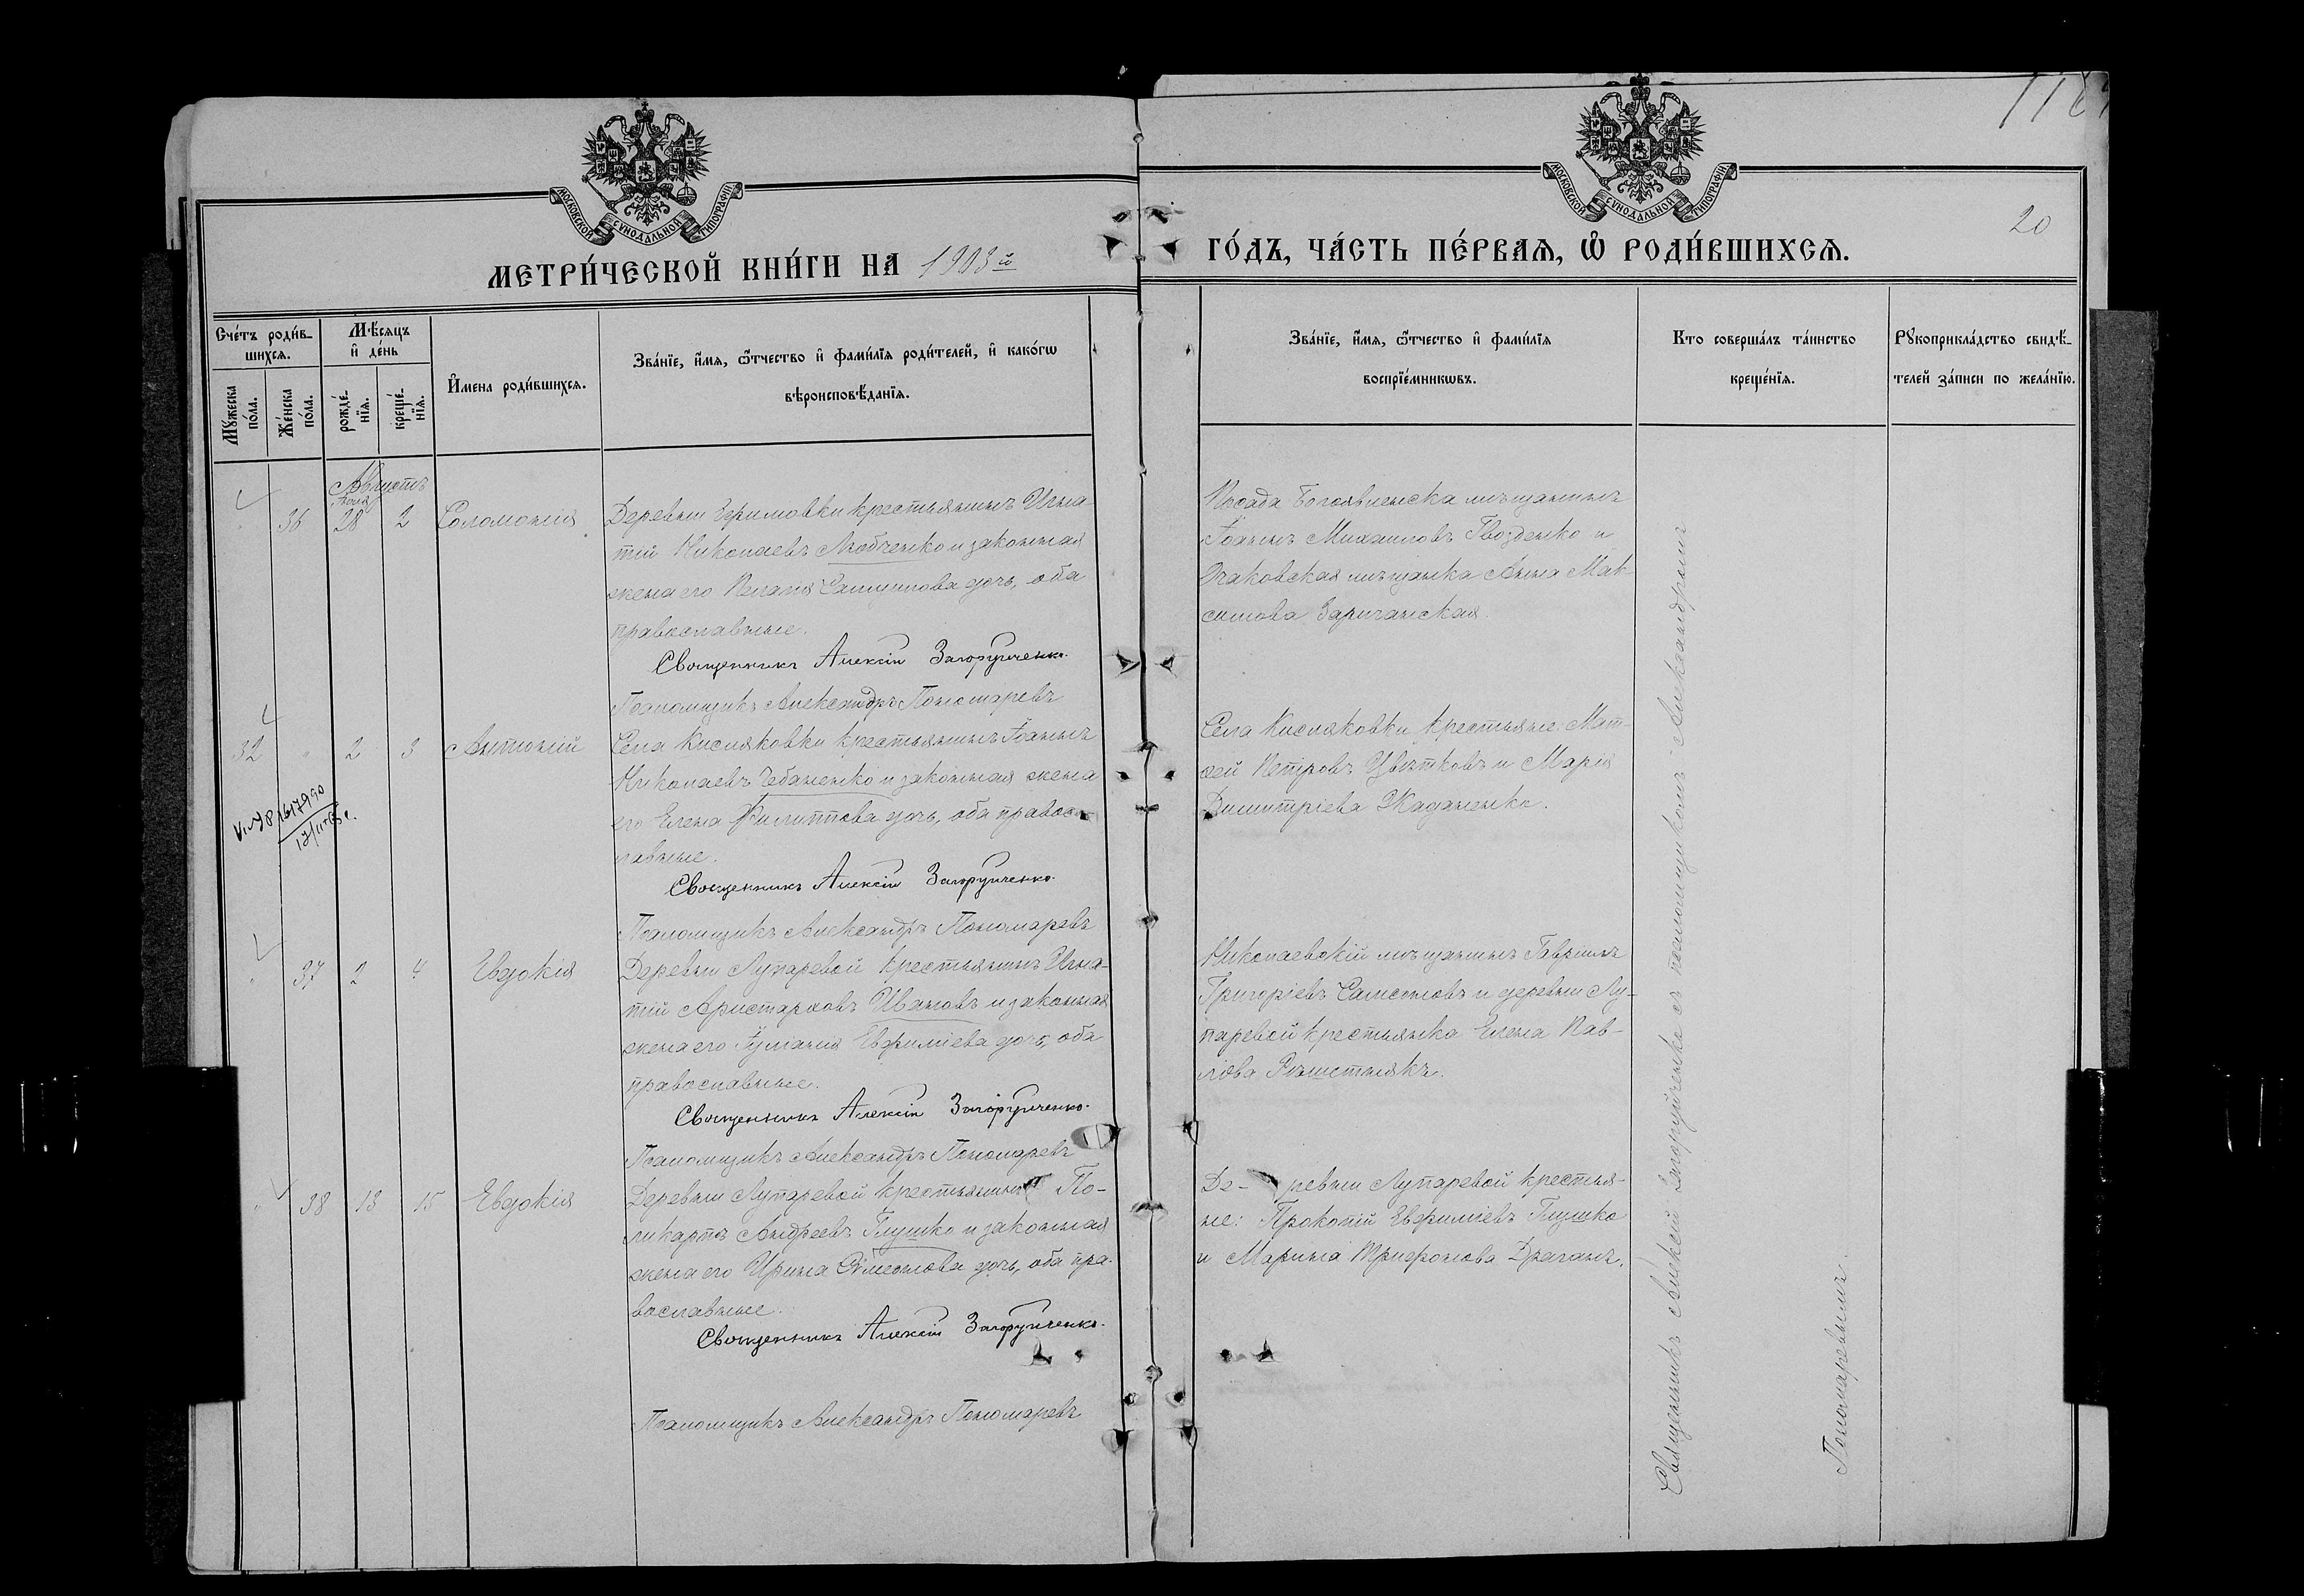 МОСКОВСКОЙ СѴНОДАЛЬНОЙ ТИПОГРАФІИ
МОСКОВСКОЙ СѴНОДАЛЬНОЙ ТИПОГРАФІИ
20
МЕТРИ́ЧЕСКОЙ КНИ́ГИ НА 1903й
ГО́ДЪ, ЧА́СТЬ ПЕ́РВАѦ, Ѡ҆ РОДИ́ВШИХСѦ.
Сче́тъ роди́в-
шихсѧ.
Мꙋ́жеска по́ла.
Же́нска по́ла.
Мѣ́сѧцъ
и҆ де́нь
рожде́-
нїѧ.
креще́-
нїѧ.
И҆мена роди́вшихсѧ.
Зва́нїе, и҆́мѧ, ѻ҆́тчество и҆ фами́лїѧ роди́телей, и҆ како́гѡ
вѣроисповѣ́данїѧ.
Зва́нїе, и҆́мѧ, ѻ҆́тчество и҆ фами́лїѧ
воспрїе́мникѡвъ.
Кто соверша́лъ та́инство
креще́нїѧ.
Рꙋкоприкла́дство свидѣ́-
телей за́писи по жела́нїю.
Августъ
36 28 2 Соломонія
Деревни Ефимовки крестьянинъ Игна-
тій Николаевъ Любченко и законная
жена его Пелагія Самуилова дочь, оба
православные.
Священникъ Алексій Загоруйченко.
Псаломщикъ Александръ Пономаревъ
Посада Богоявленска мѣщанинъ
Іоаннъ Михаиловъ Гвозденко и
Очаковская мѣщанка Анна Мак-
симова Заричанская.
32 " 2 3 Антоній
Села Кисляковки крестьянинъ Іоаннъ
Николаевъ Чебаненко и законная жена
его Елена Филиппова дочь, оба правос-
лавные.
Священникъ Алексій Загоруйченко.
Псаломщикъ Александръ Пономаревъ
Села Кисляковки крестьяне: Мат-
ѳей Петровъ Цвѣтковъ и Марія
Димитріева Жаданенко.
" 37 2 4 Евдокія
Деревни Лупаревой крестьянинъ Игна-
тій Аристарховъ Ивановъ и законная
жена его Іуліанія Евфиміева дочь, оба
православные.
Священникъ Алексій Загоруйченко.
Псаломщикъ Александръ Пономаревъ
Николаевскій мѣщанинъ Гавріилъ
Григоріевъ Самсоновъ и деревни Лу-
паревой крестьянка Елена Пав-
лова
" 38 13 15 Евдокія
Деревни Лупаревой крестьянинъ По-
ликарпъ Андреевъ Глушко и законная
жена его Ирина Симеонова дочь, оба пра-
вославные.
Священникъ Алексій Загоруйченко.
Псаломщикъ Александръ Пономаревъ
Де- ревни Лупаревой крестья-
не: Прокопій Евфиміевъ Глушко
и Марина Трифонова Драганъ.
Священникъ Алексій Загоруйченко съ псаломщикомъ Александромъ
Пономаревымъ.